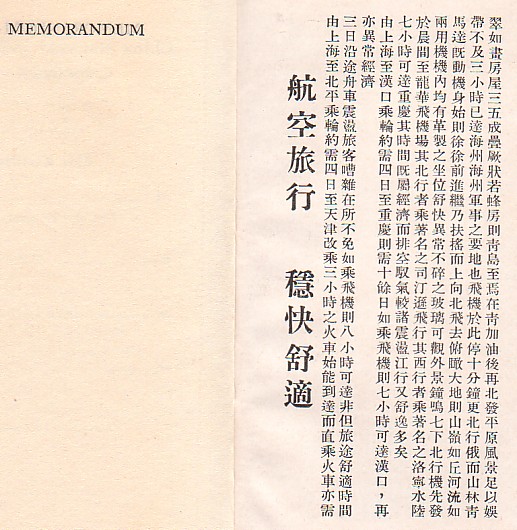 MEMORANDUM
航空旅行 穩快舒適
由上海至北平乘輪約需四日至天津改乘三小時之火車始能到達而直乘火車亦需
三日沿途舟車震盪旅客嘈雜在所不免如乘飛機則八小時可達非但旅途舒適時間
亦異常經濟
由上海至漢口乘輪約需四日至重慶則需十餘日如乘飛機則七小時可達漢口，再
七小時可達重慶其時間旣屬經濟而排空馭氣較諸震盪江行又舒逸多矣
於晨間至龍華飛機場其北行者乘著名之司汀遜飛行其西行者乘著名之洛寧水陸
兩用機機內均有革製之坐位舒快異常不碎之玻璃可觀外景鐘鳴七下北行機先發
馬達旣動機身始則徐徐前進繼乃扶搖而上向北飛去俯瞰大地則山嶺如丘河流如
帶不及三小時已達海州海州軍事之要地也飛機於此停十分鐘更北行俄而山林靑
翠如畫房屋三五成疊厥狀若蜂房則靑島至焉在靑加油後再北發平原風景足以娛